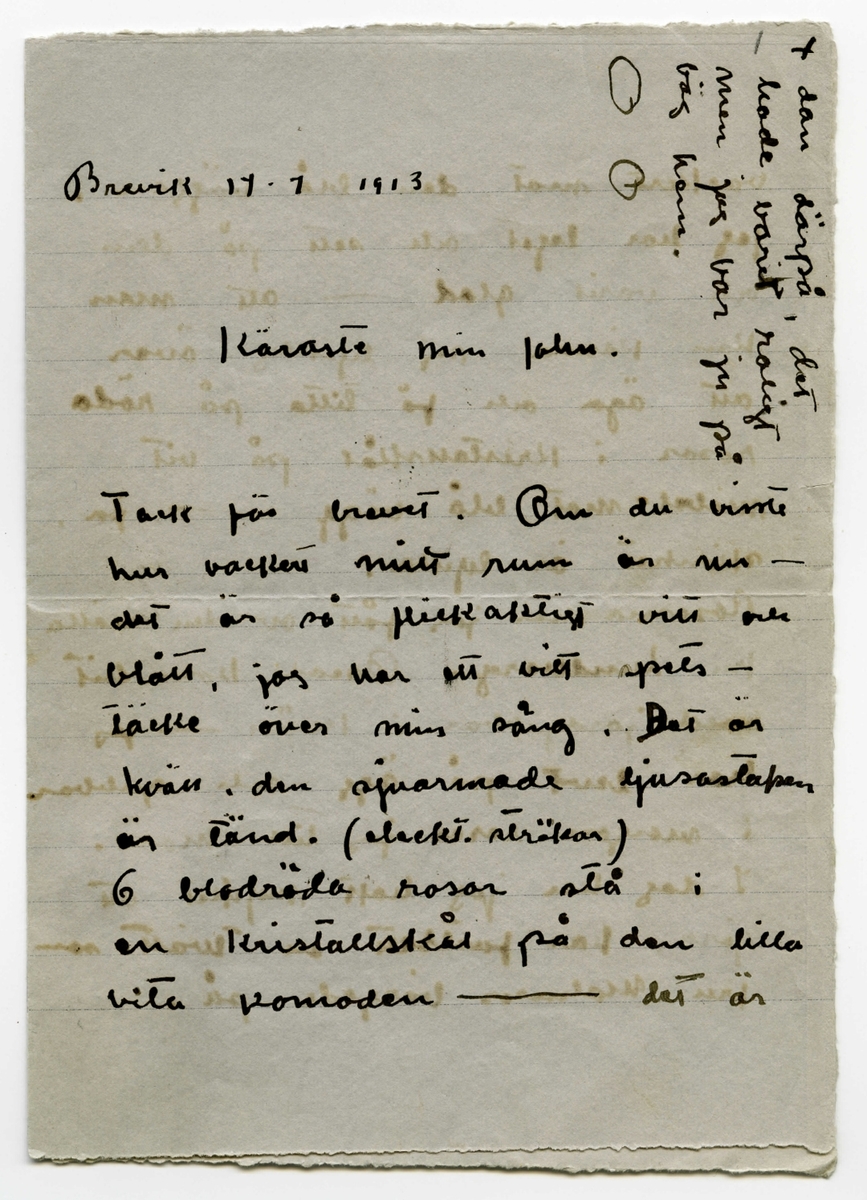 + dan därpå, det
hade varit roligt
men jag var ju på
väg hem.
Brevik 17-7 1913
Käraste min John.
Tack för brevet. Om du visste
hur vackert mitt rum är nu —
det är så flickaktigt vitt och
blått, jag har ett vitt spets —
täcke över min säng. Det är
kväll. den sjuarmade ljusastaken
är tänd. (eleckt. strökar)
6 blodröda rosor stå i
en kristallskål på den lilla
vita komoden ——— det är